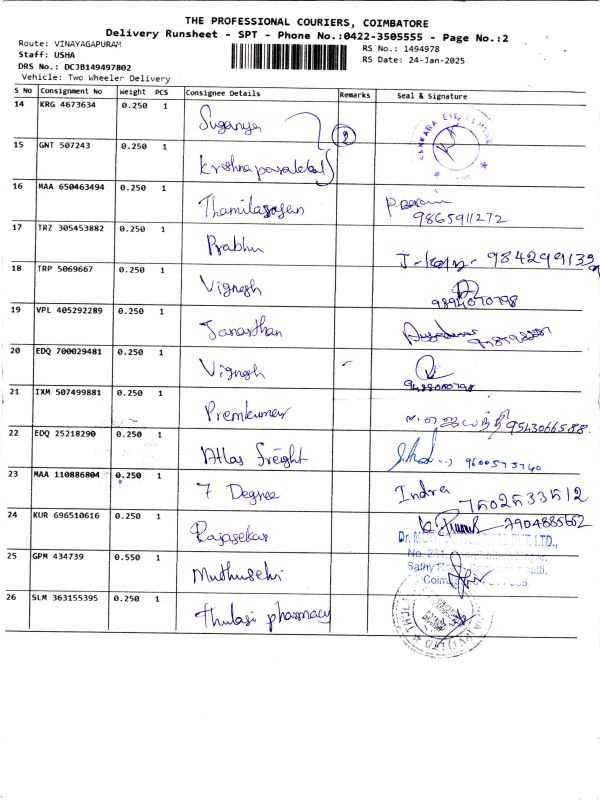 THE PROFESSIONAL COURIERS, COIMBATORE
Delivery Runsheet - SPT - Phone No.:0422-3505555 - Page No.:2
Route: VINAYAGAPURAM
Staff: USHA
DRS No.: DCJB149497802
Vehicle: Two Wheeler Delivery
RS No.: 1494978
RS Date: 24-Jan-2025
S No Consignment No Weight PCS Consignee Details Remarks Seal & Signature
14 KRG 4673634 0.250 1 Suganya
2
SANKARA EYE
15 GNT 507243 0.250 1
16 MAA 650463494 0.250 1
9865911272
17 TRZ 305453882 0.250 1 Prabhu
9842991339
18 TRP 5069667 0.250 1 Vignesh
9894070798
19 VPL 405292289 0.250 1 Janarthan
20 EDQ 700029481 0.250 1 Vignesh
21 IXM 507499881 0.250 1 Premkumar
9543066588
22 EDQ 25218290 0.250 1 Atlas freight
9600575740
23 MAA 110886804 0.250 1 7 Degree
Indra 7502533512
24 KUR 696510616 0.250 1 Rajasekar
7904885662
25 GPM 434739 0.550 1
26 SLM 363155395 0.250 1 Thulasi pharmacy